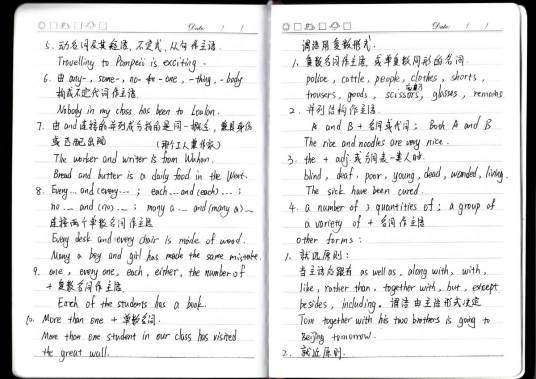 Date: / /
5. 动名词及其短语、不定式、从句作主语.
Travelling to Pompeii is exciting.
6. 由 any-, some-, no- + -one, -thing, -body
构成不定代词作主语.
Nobody in my class has been to London.
7. 由 and 连接的并列成分指的是同一概念, 兼具身份
或匹配出现 (那个工人兼作家)
The worker and writer is from Wuhan.
Bread and butter is a daily food in the West.
8. Every... and (every...) ; each... and (each) ... ;
no ... and (no) ... ; many a ... and (many a) ...
连接两个单数名词作主语
Every desk and every chair is made of wood.
Many a boy and girl has made the same mistake.
9. one, every one, each, either, the number of
+ 复数名词作主语.
Each of the students has a book.
10. More than one + 单数名词.
More than one student in our class has visited
the great wall.
Date: / /
谓语用复数形式.
1. 复数名词作主语, 或单复数同形的名词.
police, cattle, people, clothes, shorts,
trousers, goods, scissors, glasses, remains
2. 并列结构作主语.
A and B + 名词或代词; Both A and B
The rice and noodles are very nice.
3. the + adj. 或分词表一类人时.
blind, deaf, poor, young, dead, wounded, living.
The sick have been cured.
4. a number of ; quantities of ; a group of
a variety of + 名词作主语
other forms :
1. 就远原则:
当主语后跟有 as well as, along with, with,
like, rather than, together with, but, except
besides, including, 谓语由主语形式决定
Tom together with his two brothers is going to
Beijing tomorrow.
2. 就近原则.